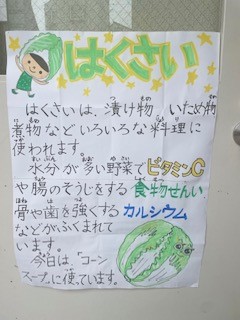 はくさい
はくさいは、漬け物、いため物、
煮物などいろいろな料理に
使われます。
水分が多い野菜でビタミンC
や腸のそうじをする食物せんい
骨や歯を強くするカルシウム
などがふくまれて
います。
今日は、「コーン
スープ」に使っています。